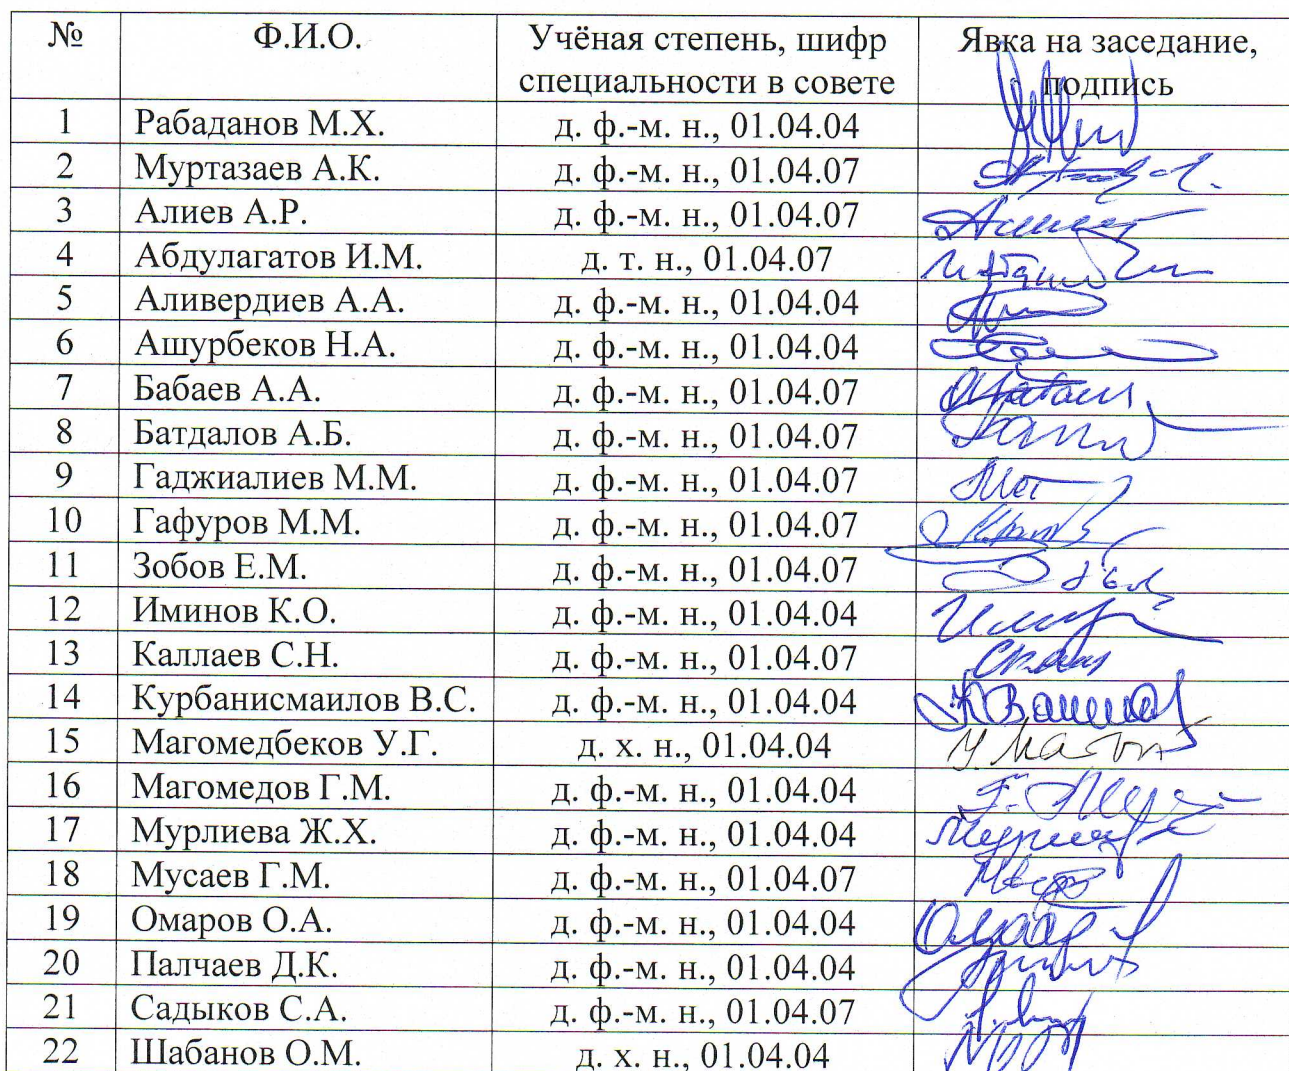 № Ф.И.О. Учёная степень, шифр специальности в совете Явка на заседание, подпись
1 Рабаданов М.Х. д. ф.-м. н., 01.04.04
2 Муртазаев А.К. д. ф.-м. н., 01.04.07
3 Алиев А.Р. д. ф.-м. н., 01.04.07
4 Абдулагатов И.М. д. т. н., 01.04.07
5 Аливердиев А.А. д. ф.-м. н., 01.04.04
6 Ашурбеков Н.А. д. ф.-м. н., 01.04.04
7 Бабаев А.А. д. ф.-м. н., 01.04.07
8 Батдалов А.Б. д. ф.-м. н., 01.04.07
9 Гаджиалиев М.М. д. ф.-м. н., 01.04.07
10 Гафуров М.М. д. ф.-м. н., 01.04.07
11 Зобов Е.М. д. ф.-м. н., 01.04.07
12 Иминов К.О. д. ф.-м. н., 01.04.04
13 Каллаев С.Н. д. ф.-м. н., 01.04.07
14 Курбанисмаилов В.С. д. ф.-м. н., 01.04.04
15 Магомедбеков У.Г. д. х. н., 01.04.04
16 Магомедов Г.М. д. ф.-м. н., 01.04.04
17 Мурлиева Ж.Х. д. ф.-м. н., 01.04.04
18 Мусаев Г.М. д. ф.-м. н., 01.04.07
19 Омаров О.А. д. ф.-м. н., 01.04.04
20 Палчаев Д.К. д. ф.-м. н., 01.04.04
21 Садыков С.А. д. ф.-м. н., 01.04.07
22 Шабанов О.М. д. х. н., 01.04.04